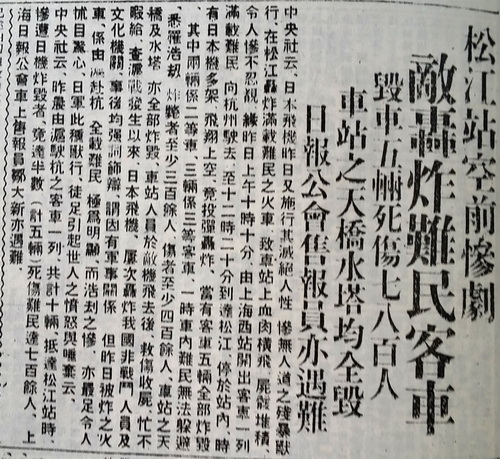 松江站空前慘劇
敵轟炸難民客車
毀車五輛死傷七八百人
車站之天橋水塔均全毀
日報公會售報員亦遇難
中央社云、日本飛機昨日又施行其滅絕人性 慘無人道之殘暴獸
行、在松江轟炸滿載難民之火車、致車站上血肉橫飛、屍骸堆積、
令人慘不忍覩、緣昨日上午十時十分、由上海西站開出客車一列
滿載難民 向杭州駛去、至十二時二十分到達松江、停於站內、時
有日本機多架、飛翔上空、竟投彈轟炸、當有客車五輛全部炸毀
其中兩輛係二等車、三輛係三等客車 一時車內難民無法躲避
悉罹浩劫、炸斃者至少三百餘人、傷者至少四百餘人、車站之天
橋及水塔、亦全部炸毀、車站人員於敵機飛去後、救傷收屍、忙不
暇給 查滬戰發生以來、日本飛機、屢次轟炸我國非戰鬥人員及
文化機關、事後均强詞飾辯、謂因有軍事關係 但昨日被炸之火
車、係由滬赴杭、全載難民、極為明顯、而浩刼之慘、亦最足令人
怵目驚心、日軍此種獸行、徒足引起世人之憤怒與唾棄云、
中央社云、昨晨由滬駛杭之客車一列、共計十輛、抵達松江站時、
慘遭日機炸毀者、竟達半數（計五輛）死傷難民達七百餘人、上
海日報公會車上售報員鄒大新亦遇難、